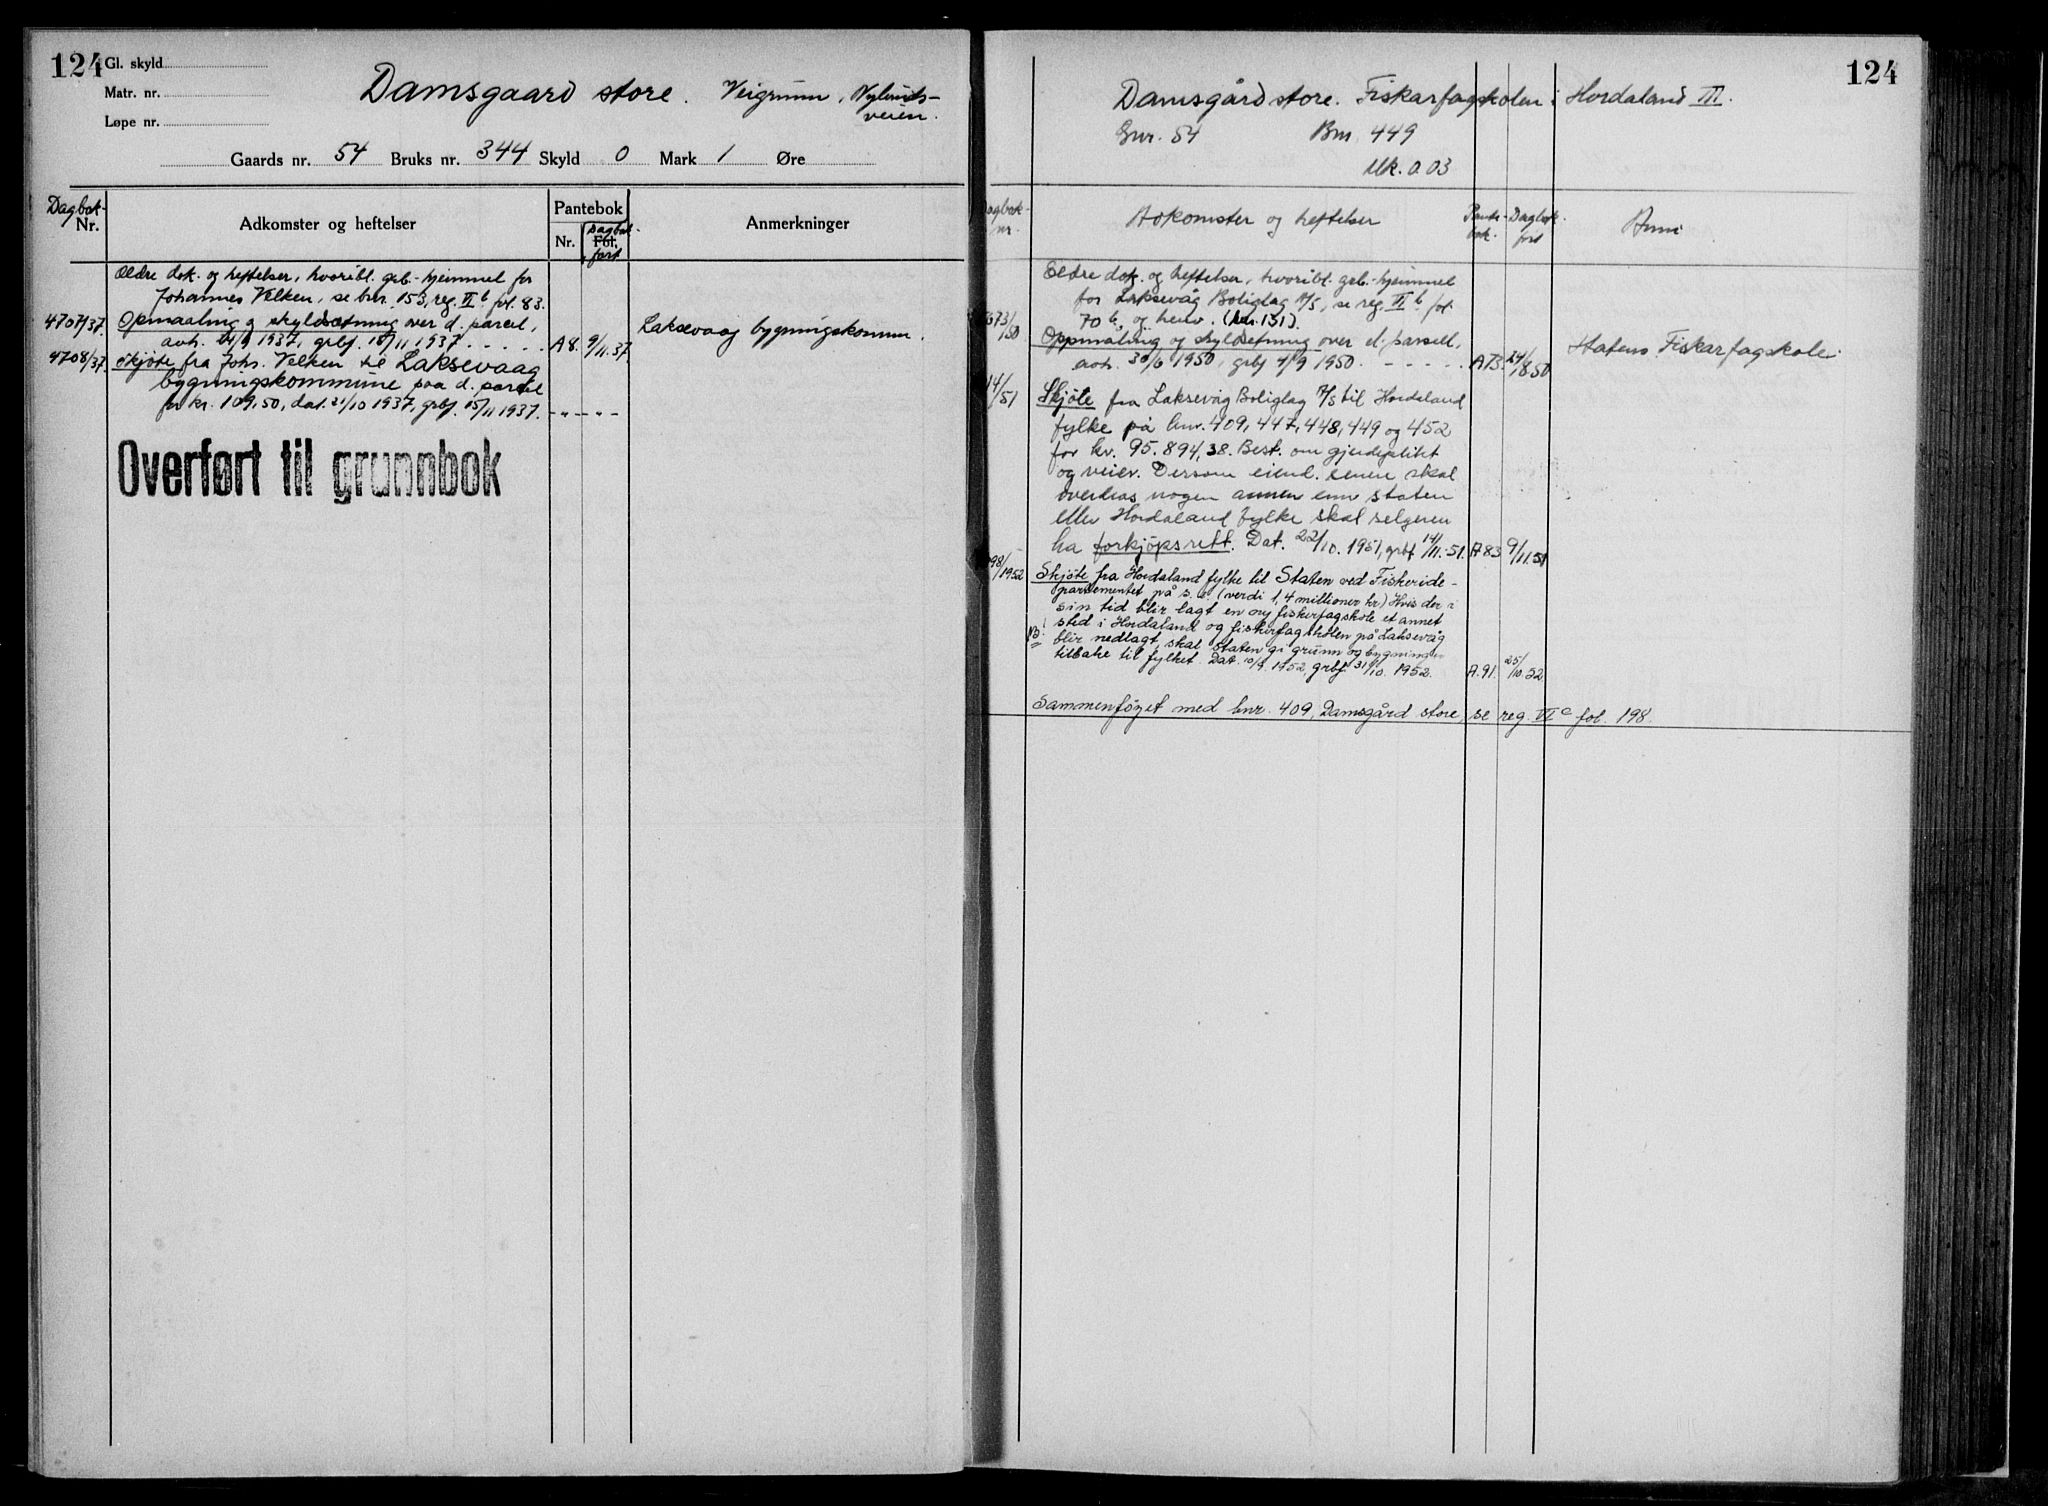 124 Gl. skyld
Matr. nr.
Løpe nr.
Damsgaard store. Veigrunn, Nylunds-
veien.
Gaards nr. 54 Bruks nr. 344 Skyld 0 Mark 1 Øre
Dagbok-
Nr.
Adkomster og heftelser
Pantebok
Nr.
Dagbok-
Fol.
ført
Anmerkninger
Ældre dok. og heftelser, hvoribl. grb.-hjemmel for
Johannes Velken, se bnr. 153, reg. VI b fol. 83.
4707/37. Opmaaling og skyldsætning over d. parcel,
avh. 21/9 1937, grbf. 15/11 1937. . . . . . A 8. 9/11.37.
Laksevaag bygningskommun.
4708/37. Skjøte fra Johs. Velken til Laksevaag
bygningskommune paa d. parcel
for kr. 109,50, dat. 21/10 1937, grbf. 15/11 1937. -"- - -
Overført til grunnbok
124
Damsgård store. Fiskarfagskolen i Hordaland III.
Gnr. 54 Bnr. 449
Mk. 0.03
Dagbok-
nr.
Adkomster og heftelser
Pante-
bok.
Dagbok
ført
Anm
Eldre dok. og heftelser, hvoribl. grb.-hjemmel
for Laksevåg Boliglag A/S, se reg. VI b fol.
70 b, og henv. (bnr. 151).
373/50 Oppmåling og skyldsetning over d. parsell,
avh. 30/6 1950, grbf 4/9 1950. - - - - - A 73. 24/8.50
Statens Fiskarfagskole
14/51 Skjøte fra Laksevåg Boliglag A/S til Hordaland
fylke på bnr. 409, 447, 448, 449 og 452
for kr. 95.894,38. Best. om gjerdeplikt
og veier. Dersom eiend. senere skal
overdras nogen annen enn staten
eller Hordaland fylke skal selgeren
ha forkjøpsrett. Dat. 22/10. 1951, grbf 14/11-51. A 83 9/11.51
98/1952 Skjøte fra Hordaland fylke til Staten ved Fiskeride-
partementet på s. e. (verdi 1,4 millioner kr) Hvis der i
sin tid blir lagt en ny fiskerfagskole et annet
sted i Hordaland og fiskerfagskolen på Laksevåg
NB! blir nedlagt, skal Staten gi grunn og bygninger
tilbake til fylket. Dat. 10/9. 1952, grbf 31/10. 1952. A.91. 25/10.52
Sammenføyet med bnr. 409, Damsgård store, se reg. VI c fol. 198.